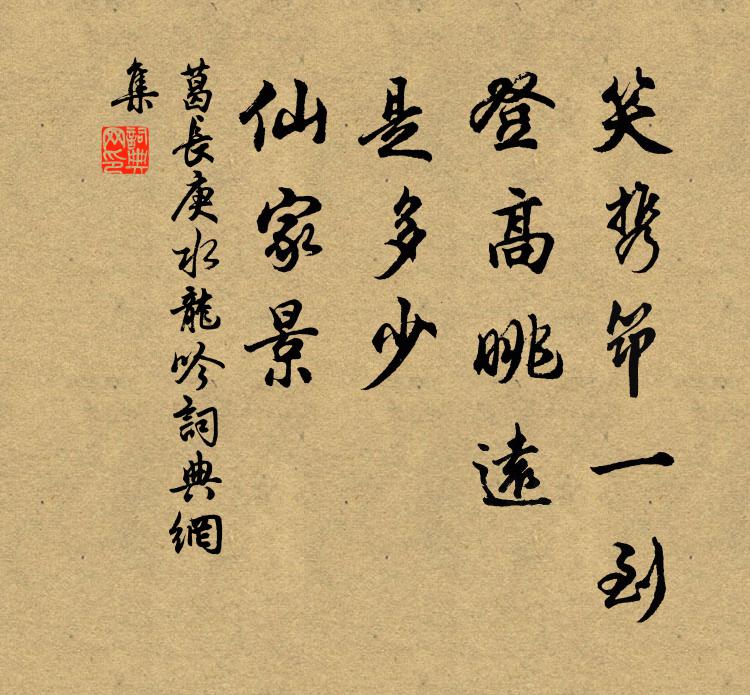 笑携筇一到
登高眺遠
是多少
仙家景
葛長庚水龍吟詞典網
集
詞典網印